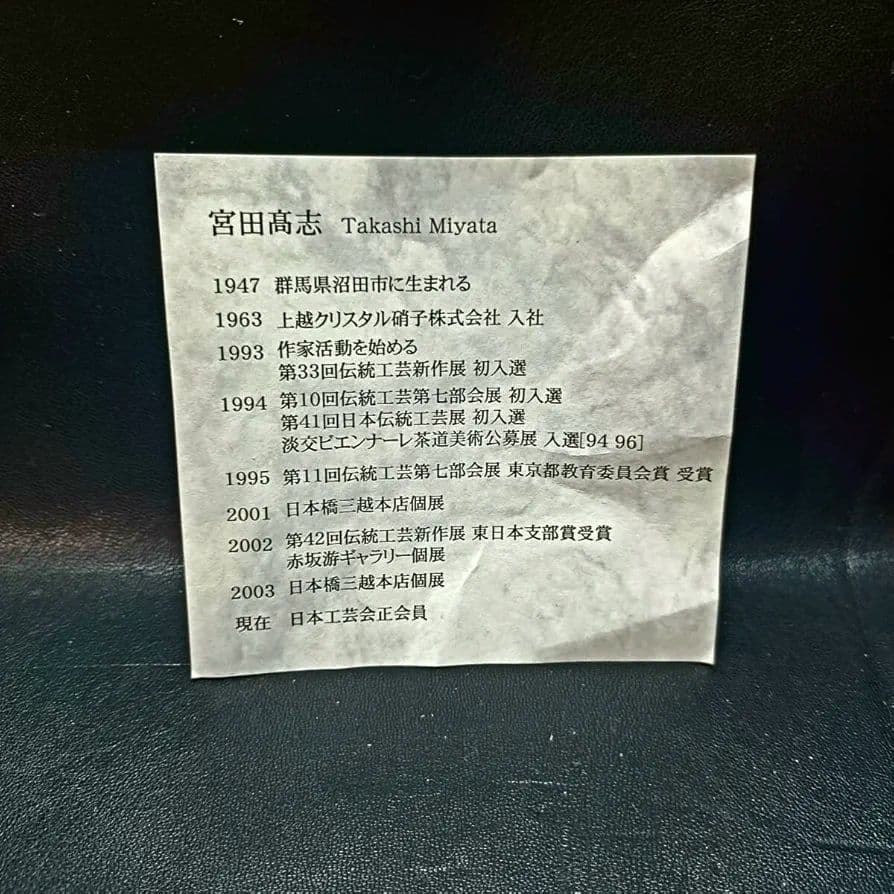 宮田髙志 Takashi Miyata
1947 群馬県沼田市に生まれる
1963 上越クリスタル硝子株式会社 入社
1993 作家活動を始める
第33回伝統工芸新作展 初入選
1994 第10回伝統工芸第七部会展 初入選
第41回日本伝統工芸展 初入選
淡交ビエンナーレ茶道美術公募展 入選[94 96]
1995 第11回伝統工芸第七部会展 東京都教育委員会賞 受賞
2001 日本橋三越本店個展
2002 第42回伝統工芸新作展 東日本支部賞受賞
赤坂游ギャラリー個展
2003 日本橋三越本店個展
現在 日本工芸会正会員